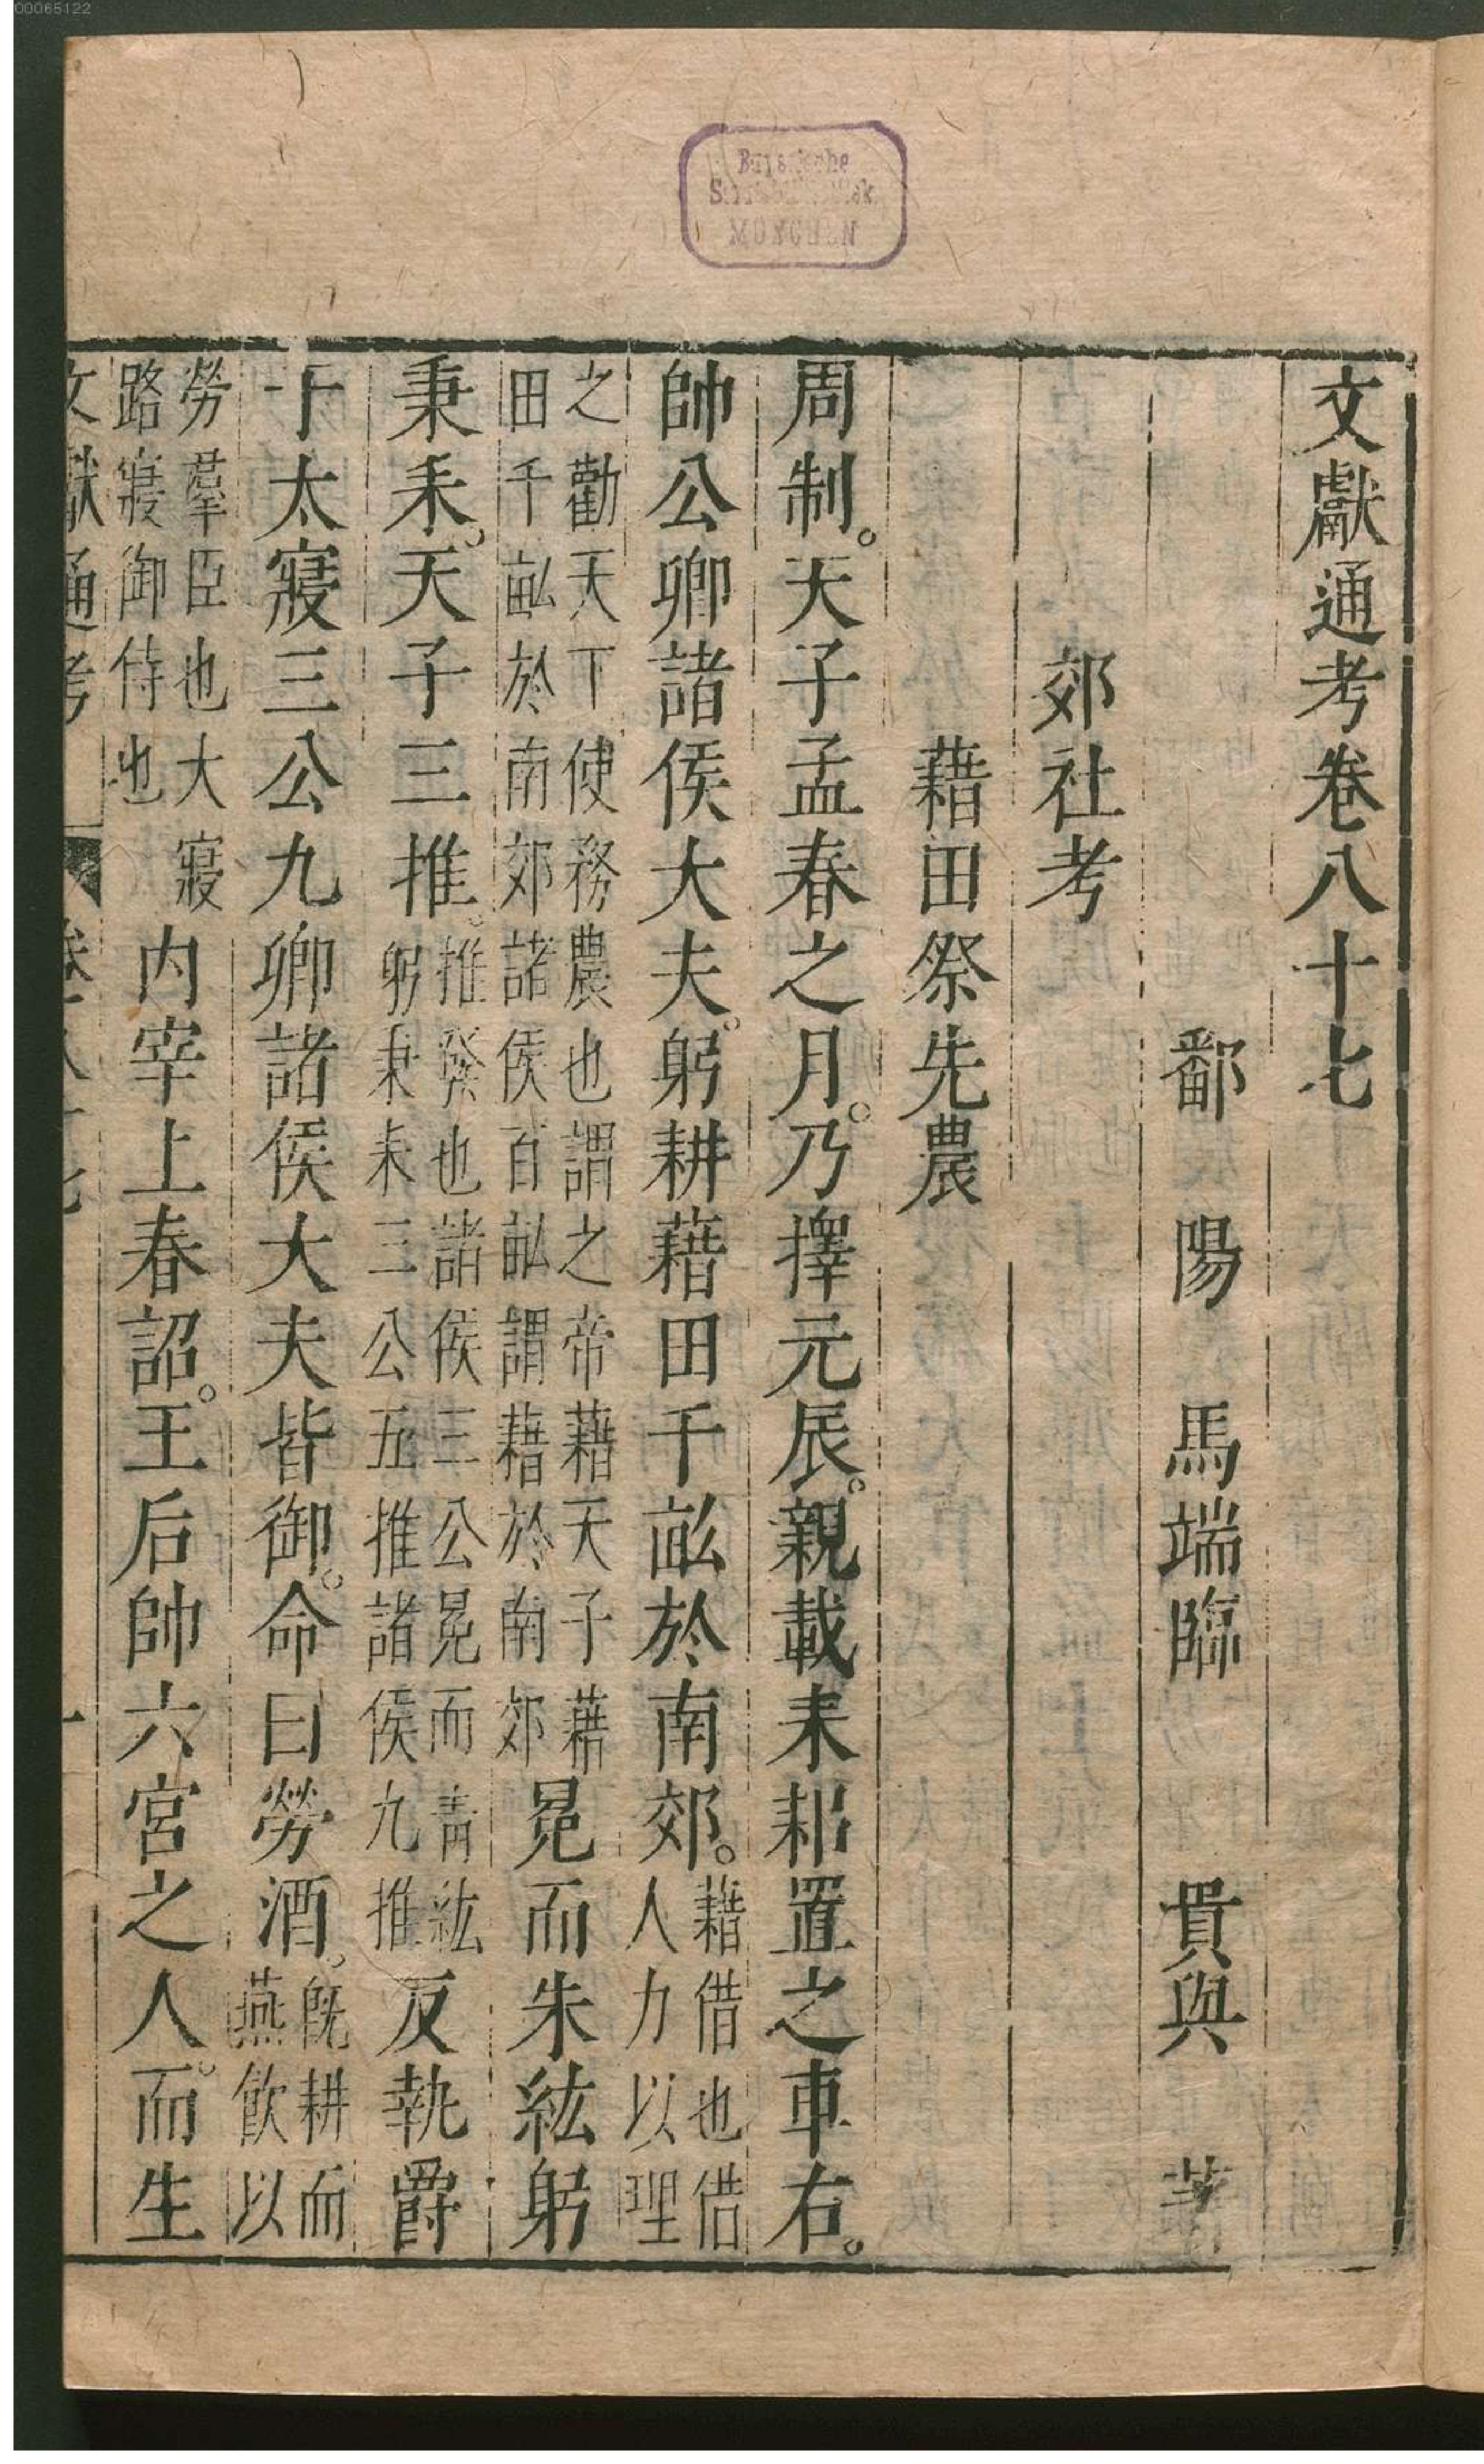 00065122
MÜNCHEN
文獻通考卷八十七
鄱陽馬端臨貴與著
郊社考
藉田祭先農
周制。天子孟春之月。乃擇元辰。親載耒耜置之車右。
帥公卿諸侯大夫。躬耕藉田千畝於南郊。藉借也借
人力以理
之勸天下使務農也謂之帝藉天子藉
田千畝於南郊諸侯百畝謂藉於南郊
冕而朱紘躬
秉耒。天子三推。推發也諸侯三公冕而青紘
躬秉耒三公五推諸侯九推
反執爵
于太寢三公九卿諸侯大夫皆御。命曰勞酒。既耕而
燕飲以
勞羣臣也大寢
路寢御侍也
内宰上春詔。王后帥六宮之人。而生
文獻通考
卷八十七
一